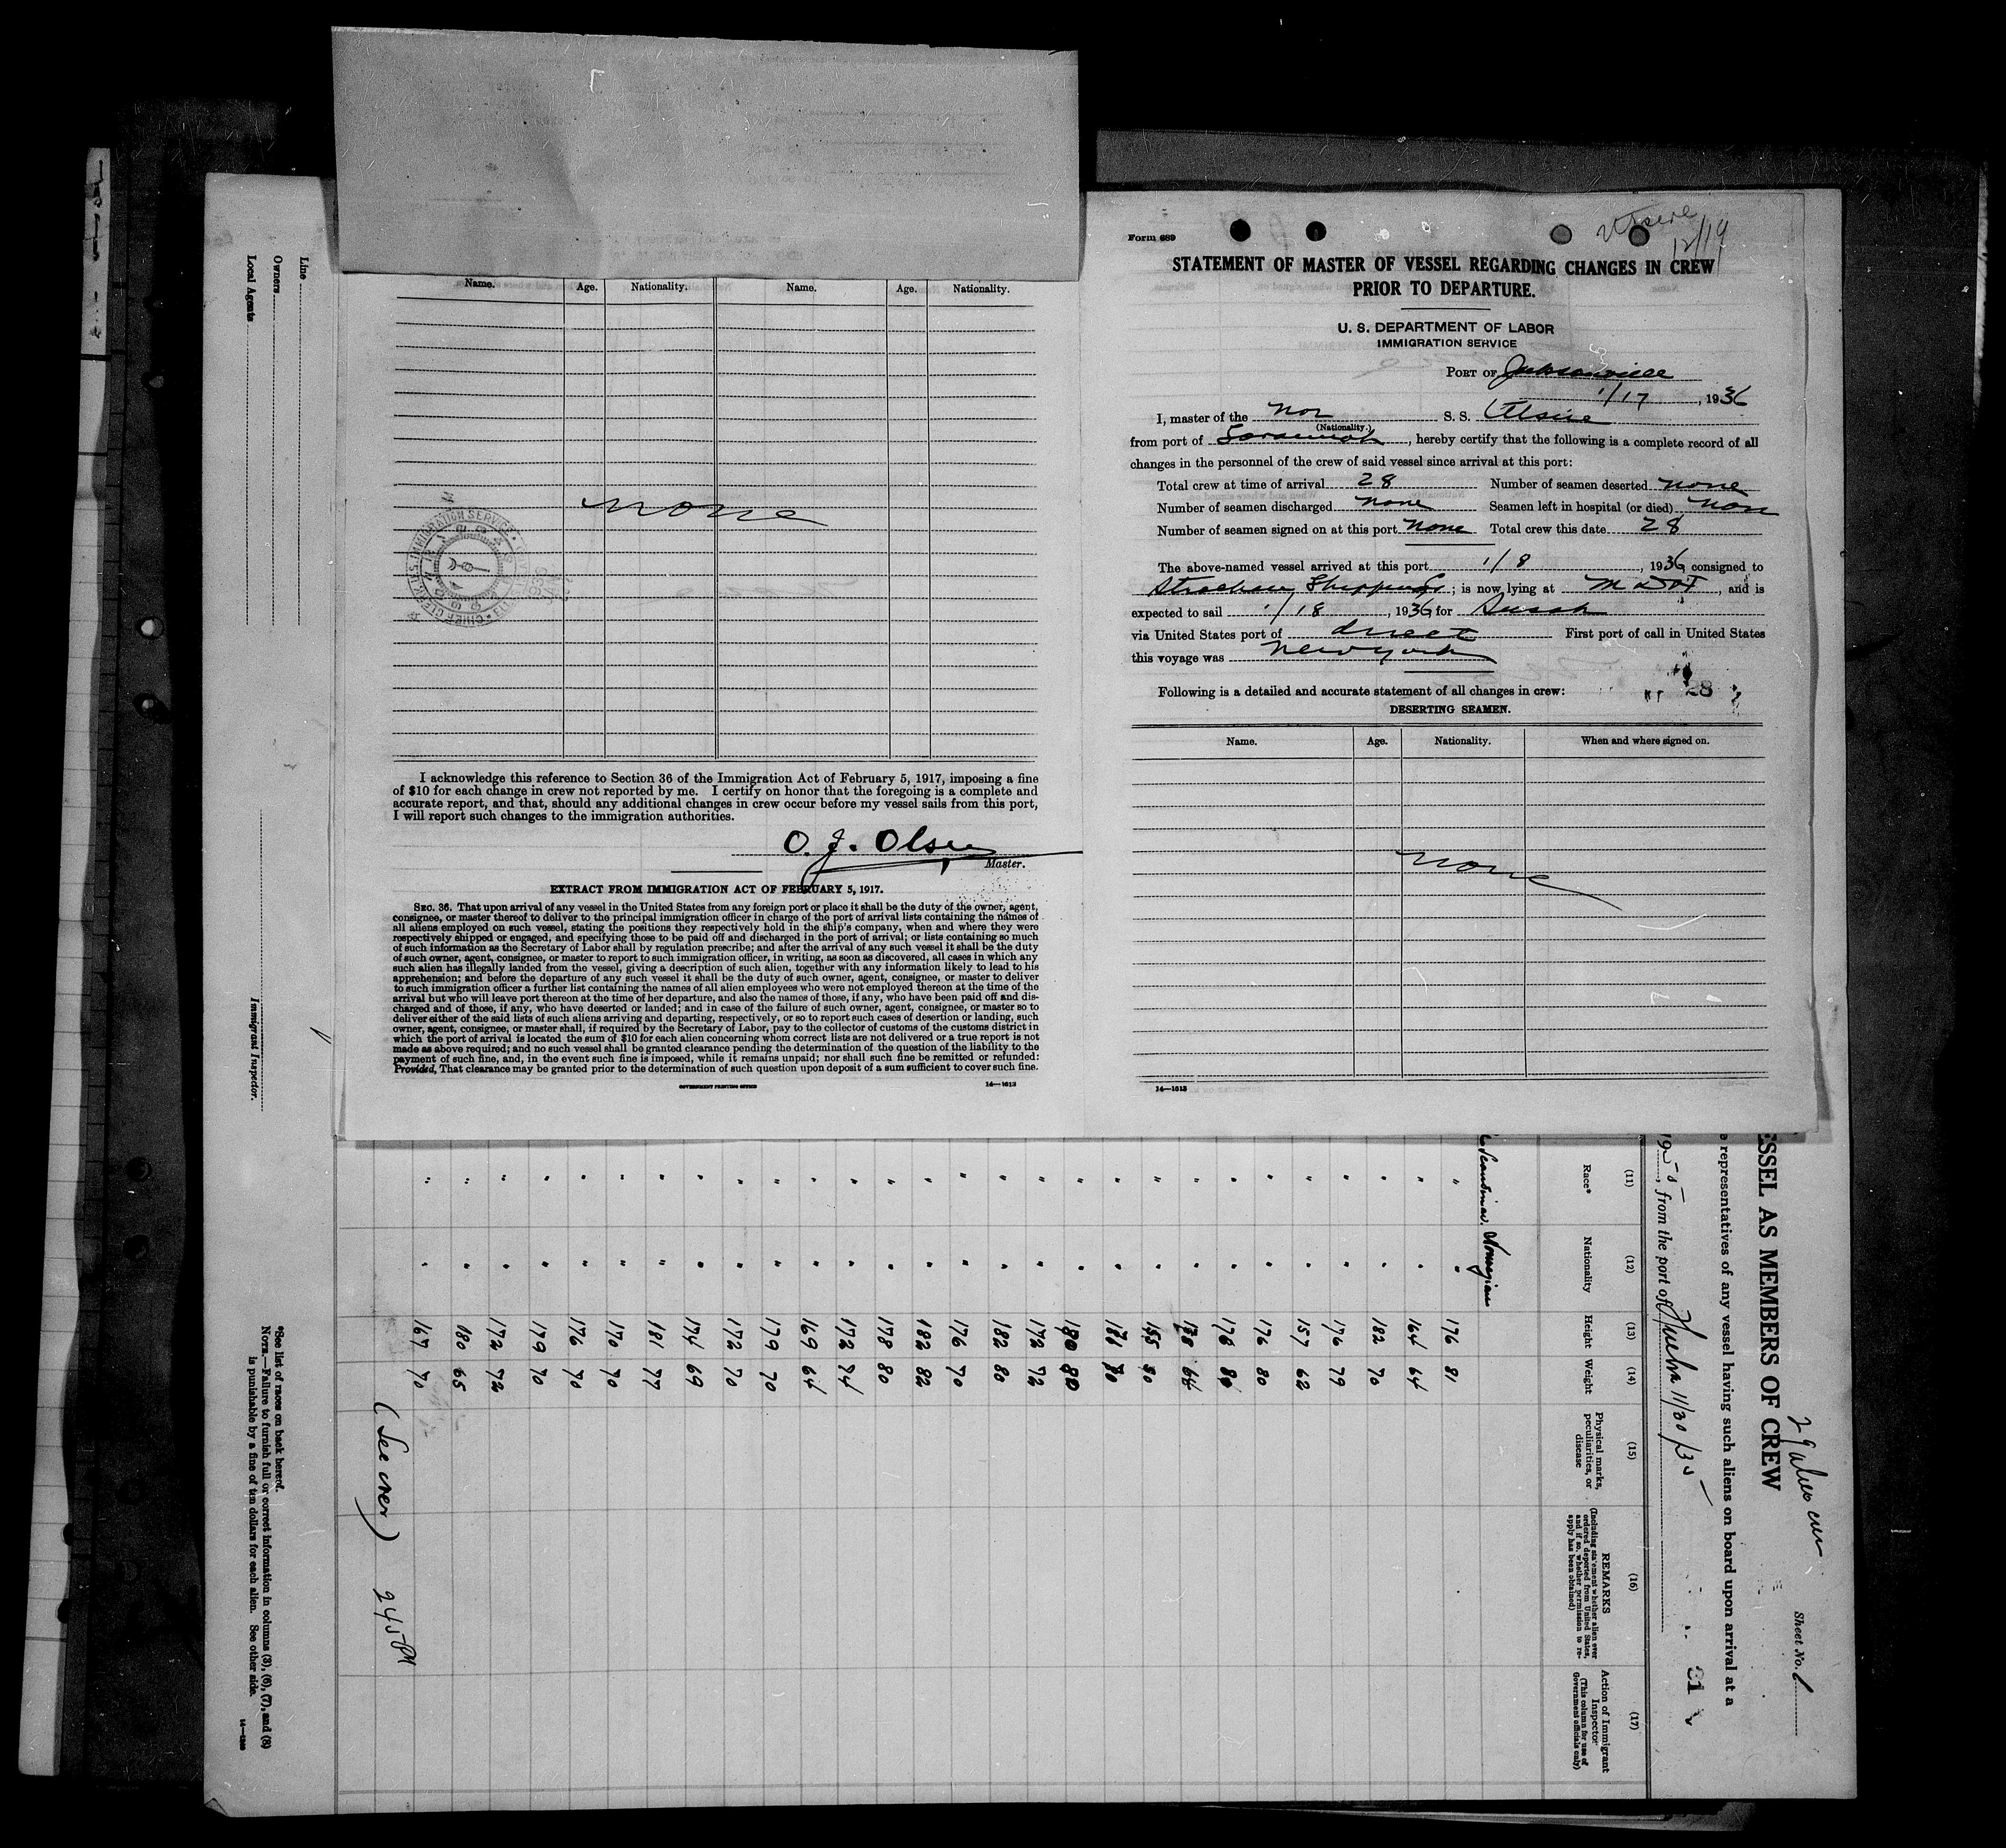 Name. Age. Nationality. Name. Age. Nationality.
none
I acknowledge this reference to Section 36 of the Immigration Act of February 5, 1917, imposing a fine
of $10 for each change in crew not reported by me. I certify on honor that the foregoing is a complete and
accurate report, and that, should any additional changes in crew occur before my vessel sails from this port,
I will report such changes to the immigration authorities.
O. J. Olsen
Master.
EXTRACT FROM IMMIGRATION ACT OF FEBRUARY 5, 1917.
SEC. 36. That upon arrival of any vessel in the United States from any foreign port or place it shall be the duty of the owner, agent,
consignee, or master thereof to deliver to the principal immigration officer in charge of the port of arrival lists containing the names of
all aliens employed on such vessel, stating the positions they respectively hold in the ship's company, when and where they were
respectively shipped or engaged, and specifying those to be paid off and discharged in the port of arrival; or lists containing so much
of such information as the Secretary of Labor shall by regulation prescribe; and after the arrival of any such vessel it shall be the duty
of such owner, agent, consignee, or master to report to such immigration officer, in writing, as soon as discovered, all cases in which any
such alien has illegally landed from the vessel, giving a description of such alien, together with any information likely to lead to his
apprehension; and before the departure of any such vessel it shall be the duty of such owner, agent, consignee, or master to deliver
to such immigration officer a further list containing the names of all alien employees who were not employed thereon at the time of the
arrival but who will leave port thereon at the time of her departure, and also the names of those, if any, who have been paid off and dis-
charged and of those, if any, who have deserted or landed; and in case of the failure of such owner, agent, consignee, or master so to
deliver either of the said lists of such aliens arriving and departing, respectively, or so to report such cases of desertion or landing, such
owner, agent, consignee, or master shall, if required by the Secretary of Labor, pay to the collector of customs of the customs district in
which the port of arrival is located the sum of $10 for each alien concerning whom correct lists are not delivered or a true report is not
made as above required; and no such vessel shall be granted clearance pending the determination of the question of the liability to the
payment of such fine, and, in the event such fine is imposed, while it remains unpaid; nor shall such fine be remitted or refunded:
Provided, That clearance may be granted prior to the determination of such question upon deposit of a sum sufficient to cover such fine.
GOVERNMENT PRINTING OFFICE 14—1613
Form 689
12/19
STATEMENT OF MASTER OF VESSEL REGARDING CHANGES IN CREW
PRIOR TO DEPARTURE.
U. S. DEPARTMENT OF LABOR
IMMIGRATION SERVICE
PORT OF Jacksonville
1/17, 1936
I, master of the Nor S. S.
(Nationality.)
from port of Savannah, hereby certify that the following is a complete record of all
changes in the personnel of the crew of said vessel since arrival at this port:
Total crew at time of arrival 28 Number of seamen deserted none
Number of seamen discharged none Seamen left in hospital (or died) none
Number of seamen signed on at this port none Total crew this date 28
The above-named vessel arrived at this port 1/8, 1936 consigned to
Strachan Shipping; is now lying at M & DT, and is
expected to sail 1/18, 1936 for
via United States port of direct First port of call in United States
this voyage was New York
Following is a detailed and accurate statement of all changes in crew: 28
DESERTING SEAMEN.
Name. Age. Nationality. When and where signed on.
none
14—1613
Sheet No. 1
ESSEL AS MEMBERS OF CREW
e representatives of any vessel having such aliens on board upon arrival at a
, from the port of 11/30/35
31
(11) (12) (13) (14) (15) (16) (17)
Race* Nationality Height Weight Physical marks, peculiarities, or disease REMARKS (Including statement whether alien ever ordered deported from United States, and if so, whether permission to re-apply has been obtained) Action of Immigrant Inspector (This column for use of Government officials only)
Scandinav. Norwegian
" " 176 81
" " 164 64
" " 182 70
" " 176 79
" " 157 62
" " 176 80
" " 176 80
" " 64
" "
" "
" " 180 80
" " 172 72
" " 182 80
" " 176 70
" " 182 82
" " 178 80
" " 172 74
" " 169 64
" " 179 70
" " 172 70
" " 174 69
" " 181 77
" " 170 70
" " 176 70
" " 179 70
" " 172 72
" " 180 65
" " 167 70
(See over) 245 PM
*See list of races on back hereof.
NOTE.—Failure to furnish full or correct information in columns (3), (6), (7), and (8)
is punishable by a fine of ten dollars for each alien. See other side.
Immigrant Inspector.
Line
Owners
Local Agents